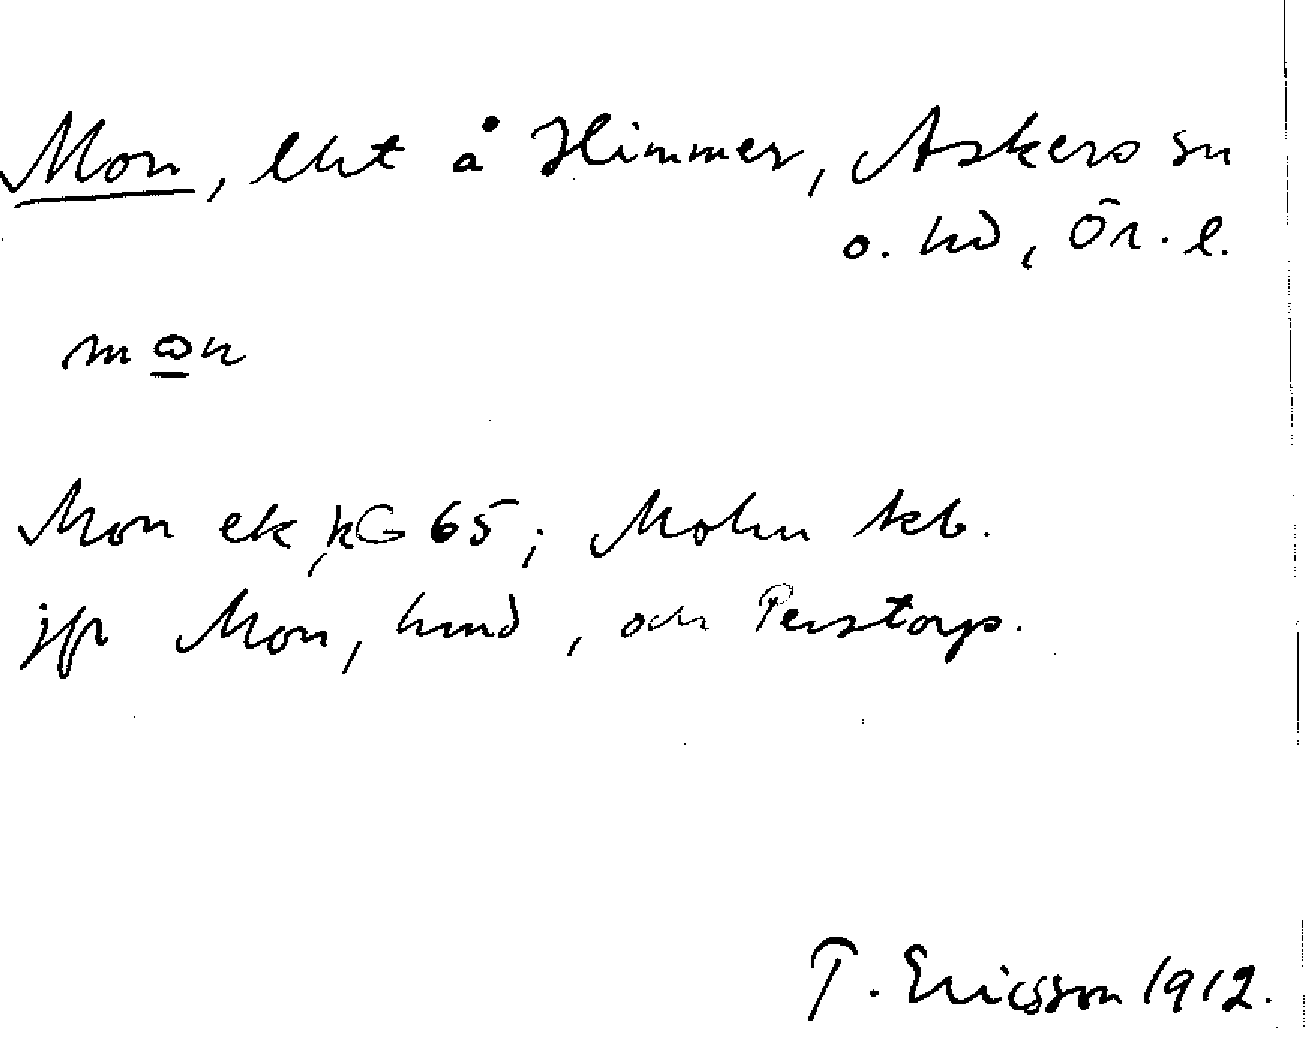 Mon, lht å Himmer, Askers sn
o. hd, Ör. l.
Mon ek kG 65; Mohn kb.
jfr Mon, hmd, och Perstorp.
T. Ericsson 1912.